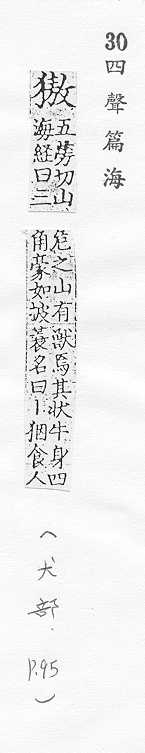 30四聲篇海
獓
五勞切山
海経曰三
危之山有獸焉其状牛身四
角豪如坡蓑名曰丨食人
(犬部. P.95)